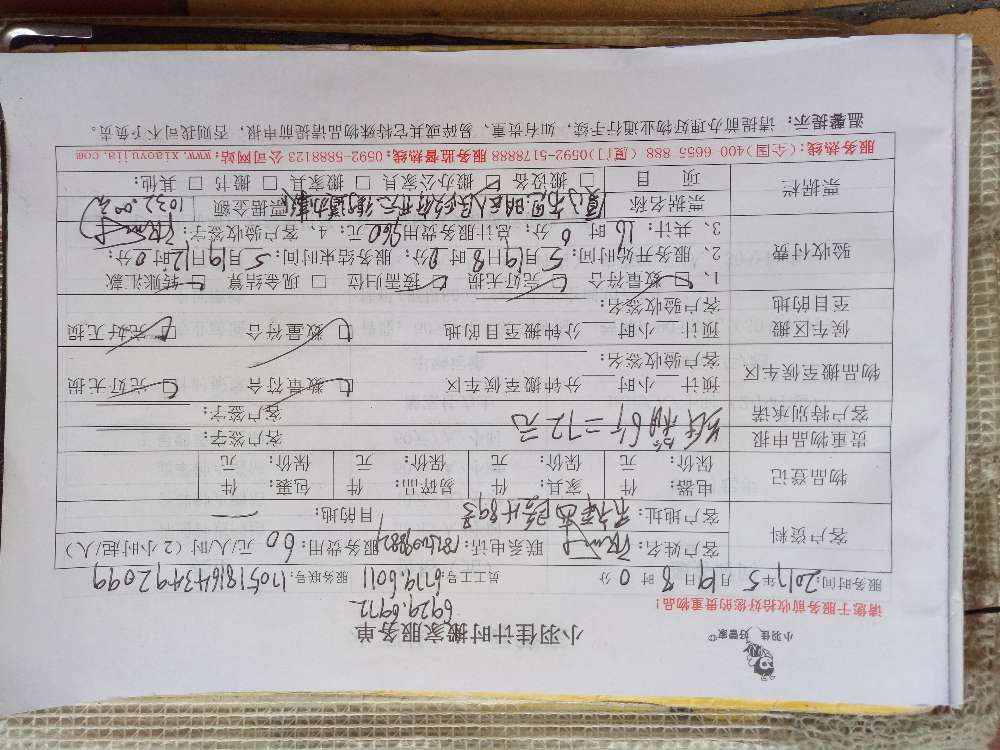 小羽佳 好管家
小羽佳计时搬家服务单
请您于服务前收拾好您的贵重物品！
6929.6972
服务时间：2017年5月19日8时0分 员工号：6719.6011 服务联号：170518164349 2099
客户资料 客户姓名： 联系电话： 服务费用：60元/人/时（2小时起/人）
客户地址： 目的地：
物品登记 电器： 件 家具： 件 易碎品： 件 包裹： 件
保价： 元 保价： 元 保价： 元 保价： 元
贵重物品申报 客户签字：
客户特别承诺 纸箱6个=72元 客户签字：
物品搬至候车区 预计 小时 分钟搬至候车区 数量符合 完好无损
客户验收签名：
候车区搬至目的地 预计 小时 分钟搬至目的地 数量符合 完好无损
客户验收签名：
验收付费 1、数量符合 完好无损 按需归位 现金结算 转账汇款
2、服务开始时间：5月19日8时0分；服务结束时间：5月19日12时0分；
3、共计：16时0分；总计服务费用960元；4、客户验收签字：
票据栏 票据名称 票据金额 1032.00元
项 目 搬设备 搬办公家具 搬家具 搬书 其他：
服务热线：(全国)400 6655 888 (厦门)0592-5178888 服务监督热线：0592-5888123 公司网站：www.xiaoyujia.com
温馨提示：请提前办理好物业通行手续，如有贵重、易碎或其它特殊物品请提前申报，否则我司不予负责。